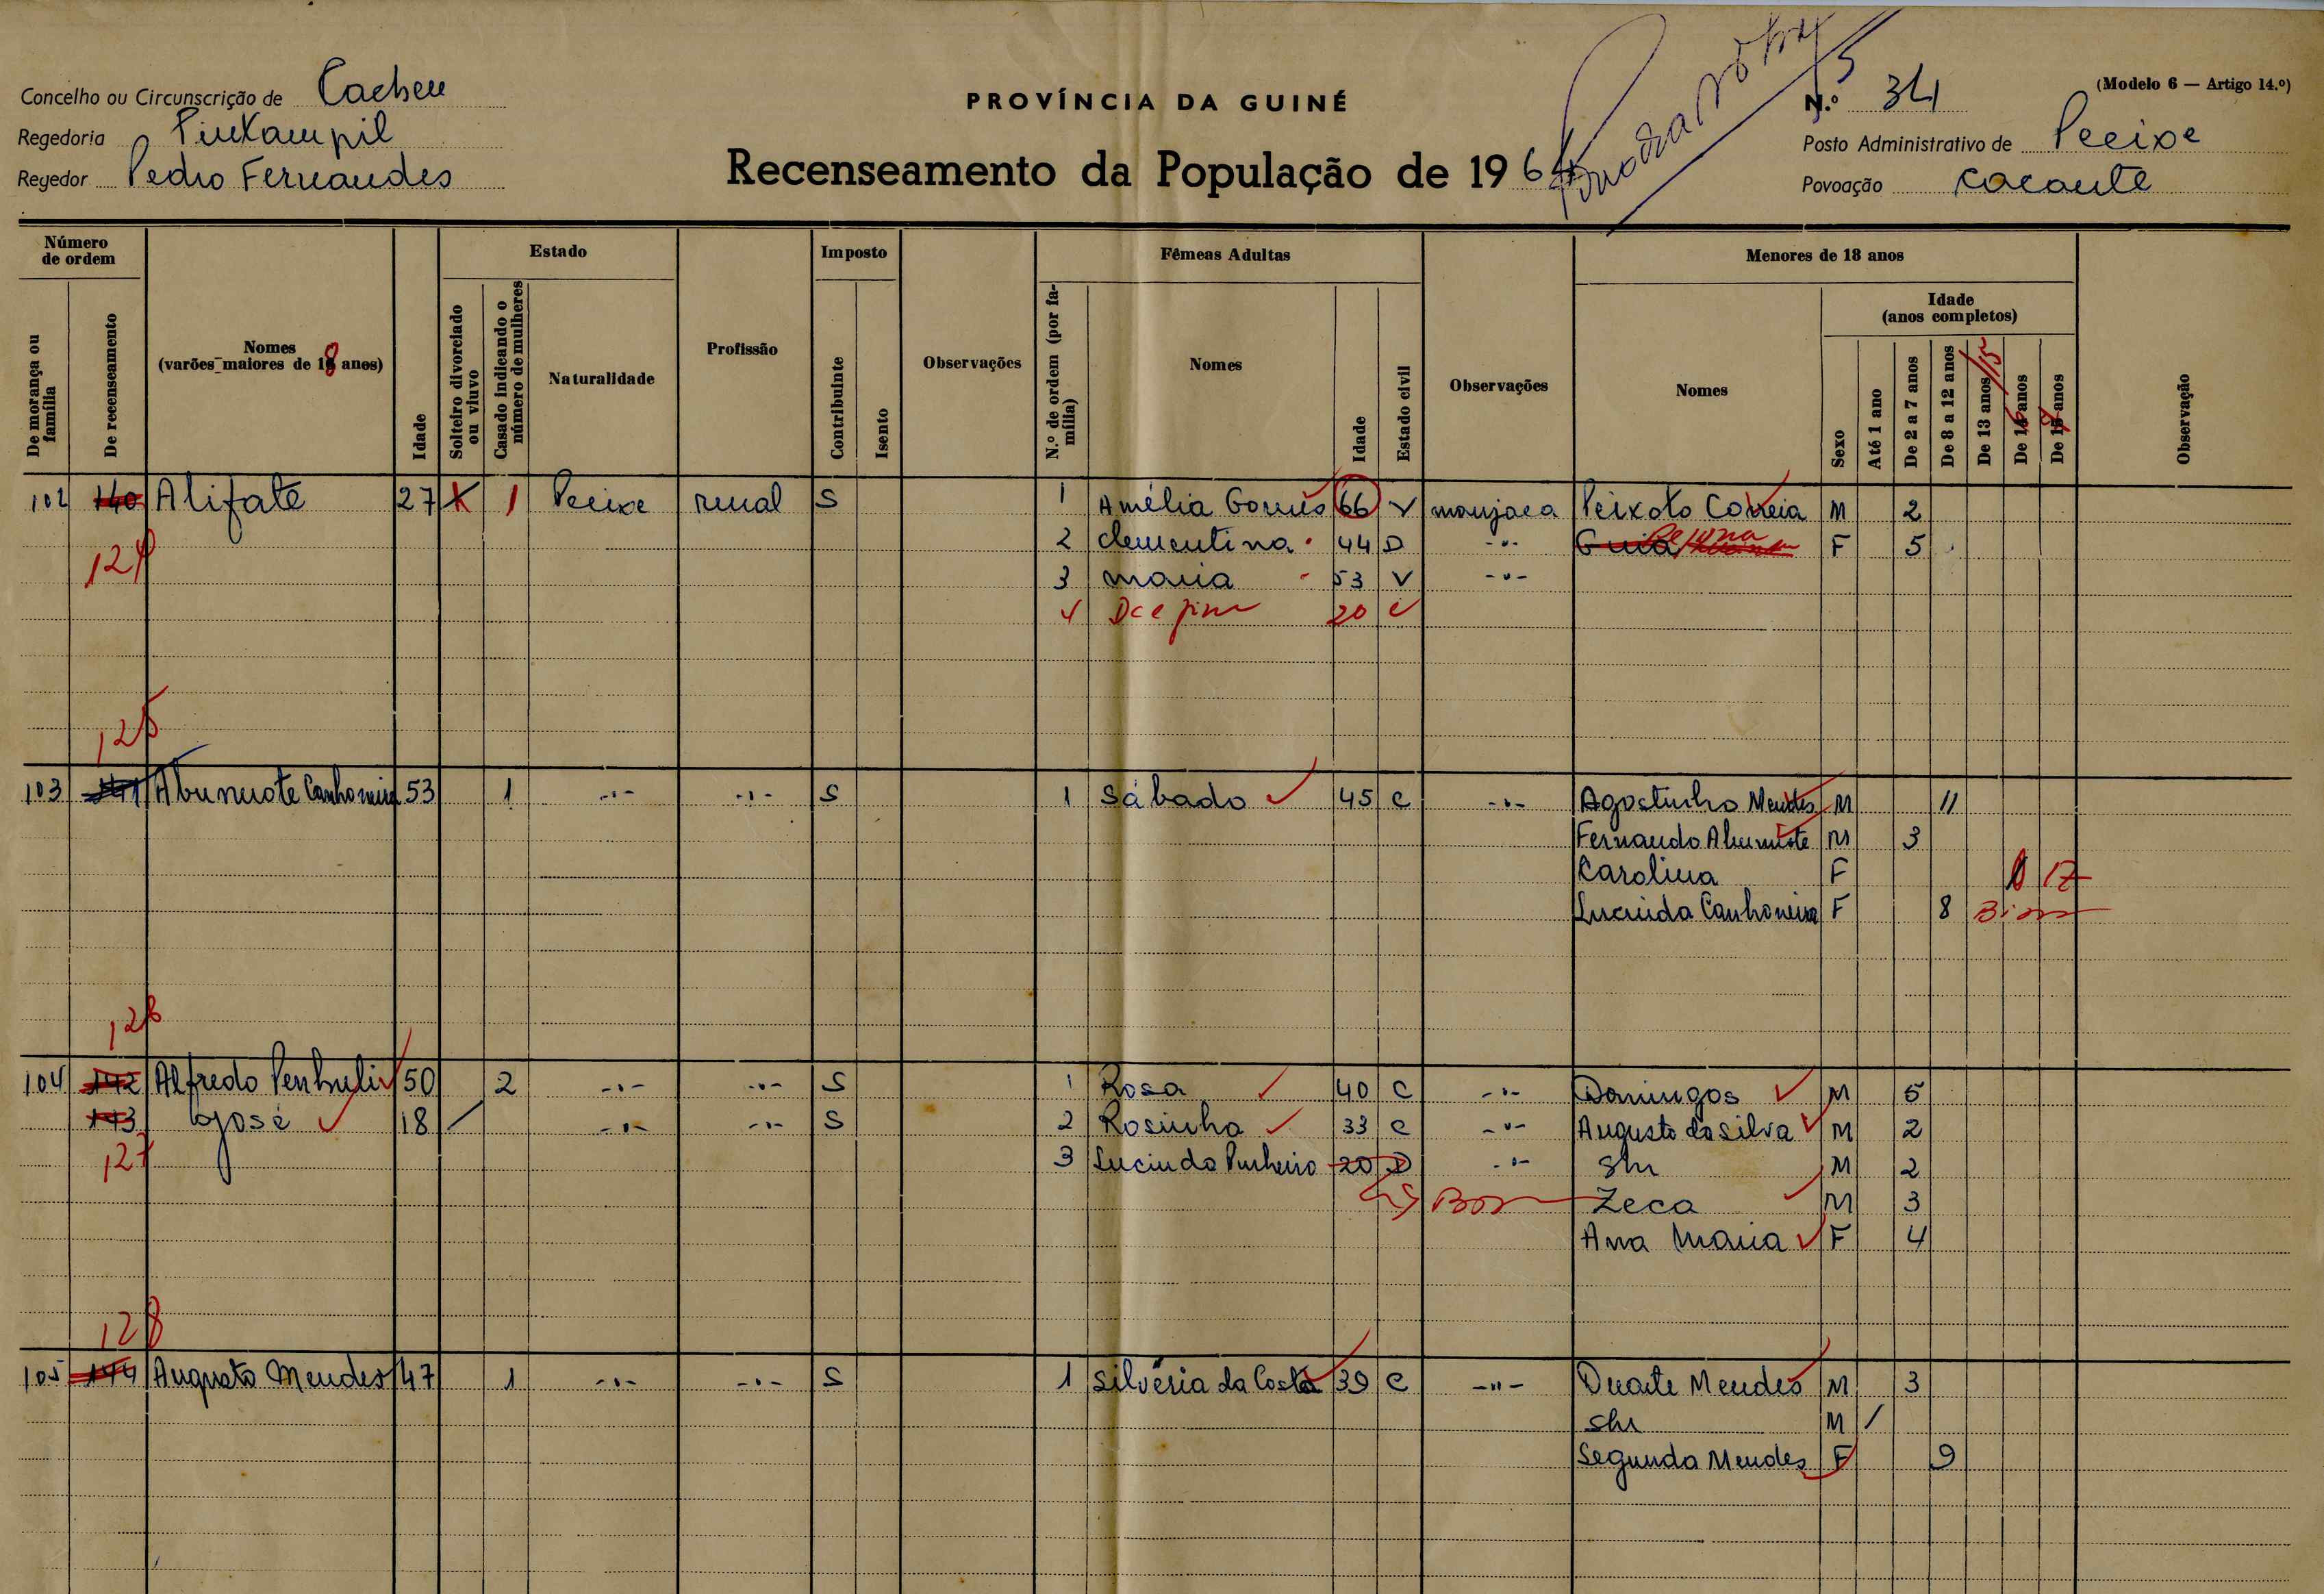 Concelho ou Circunscrição de Cacheu
Regedoria Pintampil
Regedor Pedro Fernandes
PROVÍNCIA DA GUINÉ
Recenseamento da População de 1964
(Modelo 6 — Artigo 14.º)
N.º 34
Posto Administrativo de Pecixe
Povoação Cacante
Número de ordem
De morança ou família
De recenseamento
Nomes (varões maiores de 18 anos)
Idade
Estado
Solteiro divorciado ou viuvo
Casado indicando o número de mulheres
Naturalidade
Profissão
Imposto
Contribuinte
Isento
Observações
Fêmeas Adultas
N.º de ordem (por família)
Nomes
Idade
Estado civil
Observações
Menores de 18 anos
Nomes
Idade (anos completos)
Sexo
Até 1 ano
De 2 a 7 anos
De 8 a 12 anos
De 13 anos 15
De 16 anos
De 17 anos
Observação
102 140 Alifate 27 X 1 Pecixe rural S 1 Amélia Gomes 66 V manjaca Peixoto Correia M 2
2 Clementina 44 D -"- Guia F 5
124 3 maria 53 V -"-
4 20 C
125
103 141 Abumote Canhomina 53 1 -"- -"- S 1 Sábado 45 C -"- Agostinho Mendes M 11
Fernando Abumote M 3
Carolina F 17
Lucinda Canhomina F 8
126
104 142 Alfredo Penhulin 50 2 -"- -"- S 1 Rosa 40 C -"- Domingos M 5
143 José 18 / -"- -"- S 2 Rosinha 33 C -"- Augusto da Silva M 2
127 3 Lucinda Pinheiro 20 D -"- S/n M 2
Zeca M 3
Ana Maria F 4
128
105 144 Augusto Mendes 47 1 -"- -"- S 1 Silvéria da Costa 39 C -"- Duarte Mendes M 3
S/n M /
Segunda Mendes F 9